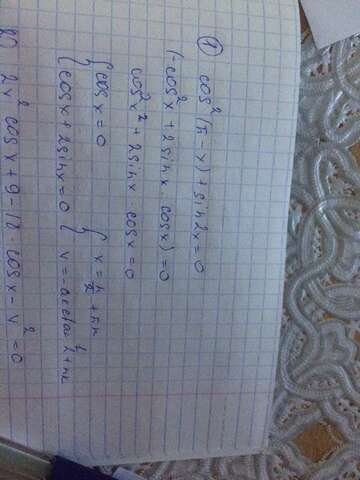 ① cos²(π-x)+sin2x=0
(-cos²x+2sinx·cosx)=0
cos²x²+2sinx·cosx=0
{cosx=0 {x=π/2+πn
{cosx+2sinx=0 {x=-arctg 1/2+πk
2x²cosx+9-18·cosx-x²=0